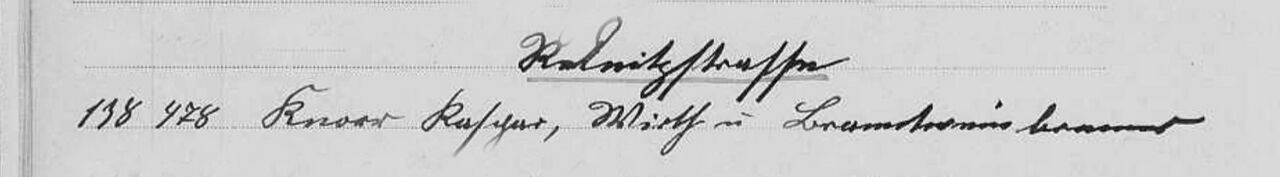 Rednitzstrasse
138 478 Knorr Kaspar, Wirth u Branntweinbrenner